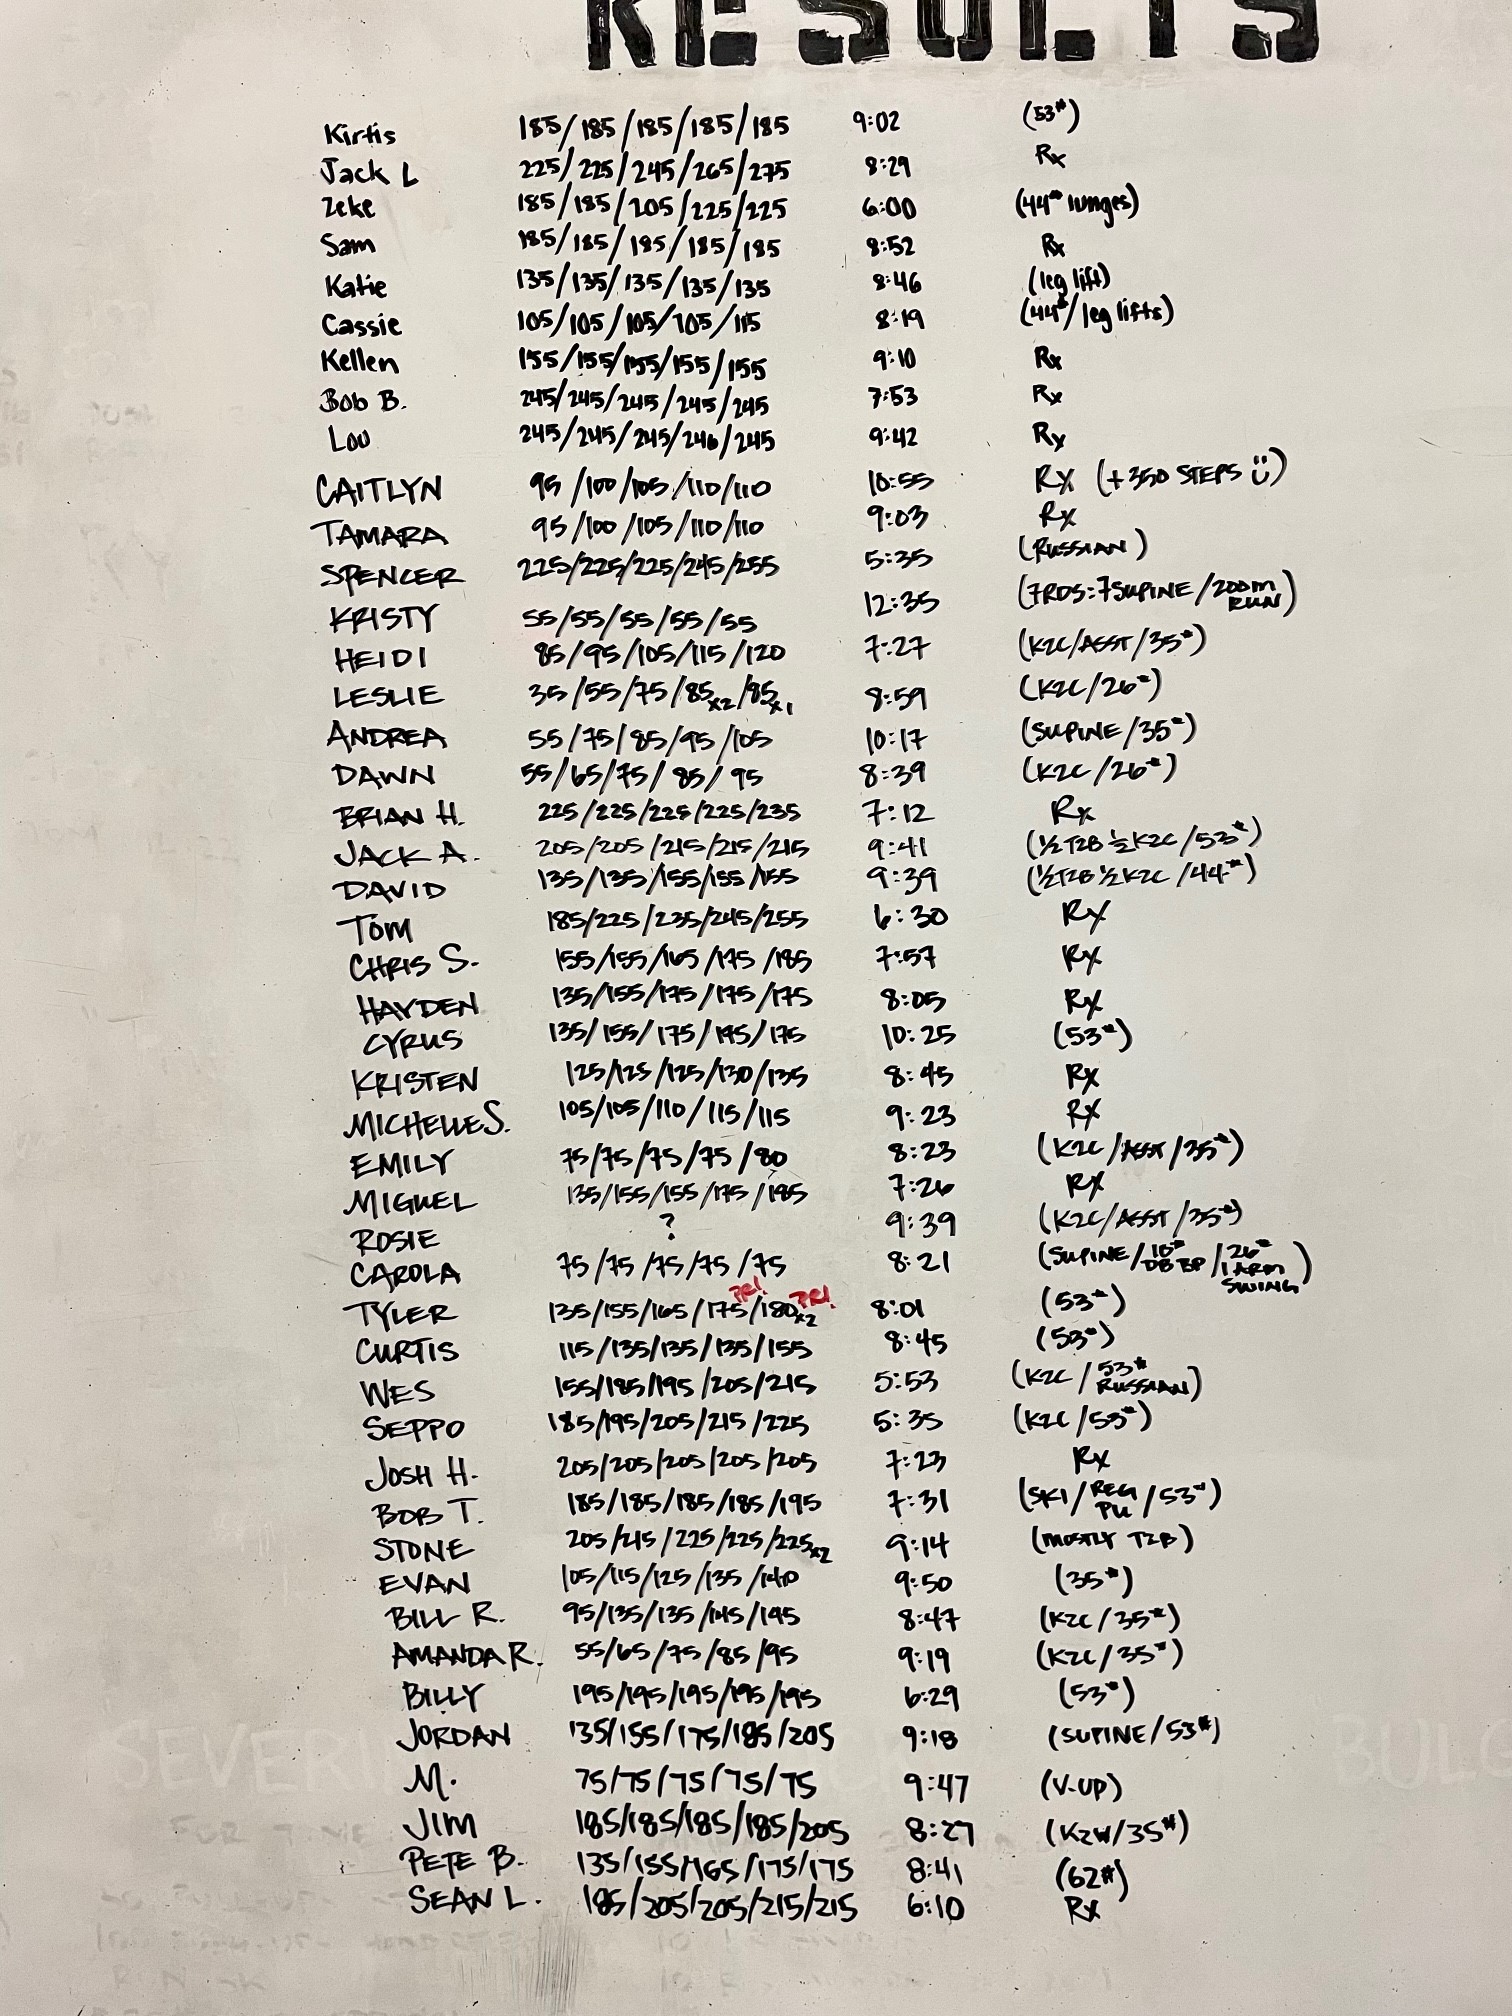 RESULTS
Kirtis 185/185/185/185/185 9:02 (53#)
Jack L 225/225/245/265/275 8:29 Rx
Zeke 185/185/205/225/225 6:00 (44# lunges)
Sam 185/185/185/185/185 8:52 Rx
Katie 135/135/135/135/135 8:46 (leg lift)
Cassie 105/105/105/105/115 8:19 (44#/leg lifts)
Kellen 155/155/155/155/155 9:10 Rx
Bob B. 245/245/245/245/245 7:53 Rx
Lou 245/245/245/246/245 9:42 Rx
CAITLYN 95/100/105/110/110 10:55 RX (+350 STEPS Ü)
TAMARA 95/100/105/110/110 9:03 RX
SPENCER 225/225/225/245/255 5:35 (RUSSIAN)
KRISTY 55/55/55/55/55 12:35 (7RDS:7SUPINE/200m RUN)
HEIDI 85/95/105/115/120 7:27 (K2C/ASST/35#)
LESLIE 35/55/75/85x2/85x1 8:59 (K2C/26#)
ANDREA 55/75/85/95/105 10:17 (SUPINE/35#)
DAWN 55/65/75/85/95 8:39 (K2C/26#)
BRIAN H. 225/225/225/225/235 7:12 Rx
JACK A. 205/205/215/215/215 9:41 (½T2B ½K2C/53#)
DAVID 135/135/155/155/155 9:39 (½T2B ½K2C/44#)
TOM 185/225/235/245/255 6:30 RX
CHRIS S. 155/155/165/175/185 7:57 RX
HAYDEN 135/155/175/175/175 8:05 RX
CYRUS 135/155/175/195/175 10:25 (53#)
KRISTEN 125/125/125/130/135 8:45 RX
MICHELLE S. 105/105/110/115/115 9:23 RX
EMILY 75/75/75/75/80 8:23 (K2C/ASST/35#)
MIGUEL 135/155/155/175/185 7:26 RX
ROSIE ? 9:39 (K2C/ASST/35#)
CAROLA 75/75/75/75/75 8:21 (SUPINE/10# DB BP/26# 1 ARM SWING)
TYLER 135/155/165/175 PR!/180x2 PR! 8:01 (53#)
CURTIS 115/135/135/135/155 8:45 (53#)
WES 155/185/195/205/215 5:53 (K2C/53# RUSSIAN)
SEPPO 185/195/205/215/225 5:35 (K2C/53#)
JOSH H. 205/205/205/205/205 7:23 Rx
BOB T. 185/185/185/185/195 7:31 (SKI/REG PU/53#)
STONE 205/215/225/225/225x2 9:14 (MOSTLY T2B)
EVAN 105/115/125/135/140 9:50 (35#)
BILL R. 95/135/135/145/145 8:47 (K2C/35#)
AMANDA R. 55/65/75/85/95 9:19 (K2C/35#)
BILLY 195/195/195/195/195 6:29 (53#)
JORDAN 135/155/175/185/205 9:18 (SUPINE/53#)
M. 75/75/75/75/75 9:47 (V-UP)
JIM 185/185/185/185/205 8:27 (K2W/35#)
PETE B. 135/155/165/175/175 8:41 (62#)
SEAN L. 185/205/205/215/215 6:10 Rx